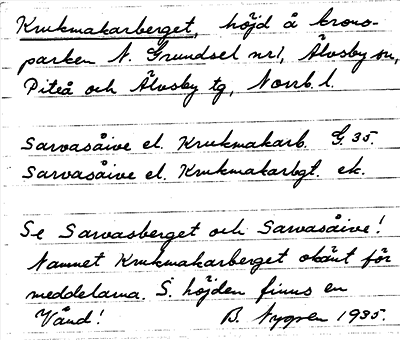 Krukmakarberget, höjd å krono-
parken N. Grundsel nr 1, Älvsby sn,
Piteå och Älvsby tg, Norrb. l.
Sarvasåive el. Krukmakarb. G. 35.
Sarvasåive el. Krukmakarbgt. ek.
Se Sarvasberget och Sarvasåive!
Namnet Krukmakarberget okänt för
meddelarna. S. höjden finns en
Vånd!
B. Nygren 1935.